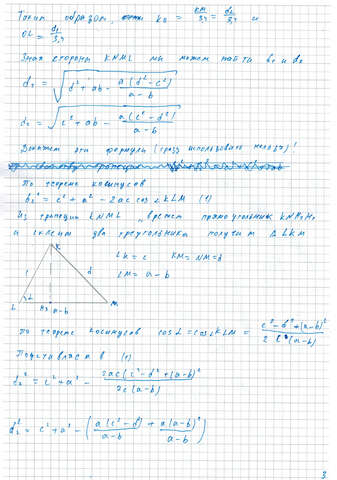 Таким образом, KO = \frac{KM}{3,4} = \frac{d_2}{3,4} и
OL = \frac{d_1}{3,4}
Зная стороны KNML мы можем найти d_1 и d_2
d_1 = \sqrt{d^2 + ab - \frac{a(d^2 - c^2)}{a - b}}
d_2 = \sqrt{c^2 + ab - \frac{a(c^2 - d^2)}{a - b}}
Докажем эти формулы (сразу использовать нельзя)!
По теореме косинусов
d_2^2 = c^2 + a^2 - 2ac cos∠KLM (1)
Из трапеции KNML вырежем прямоугольник
и склеим два треугольника получим Δ LKM
K
LK = c KM = NM = d
c d
LM = a - b
L α H_1 a-b M
по теореме косинусов cos α = cos∠KLM = \frac{c^2 - d^2 + (a-b)^2}{2c(a-b)}
Подставляем в (1)
d_2^2 = c^2 + a^2 - \frac{2ac(c^2 - d^2 + (a-b)^2)}{2c(a-b)}
d_2^2 = c^2 + a^2 - \left(\frac{a(c^2 - d)}{a-b} + \frac{a(a-b)^2}{a-b}\right)
3